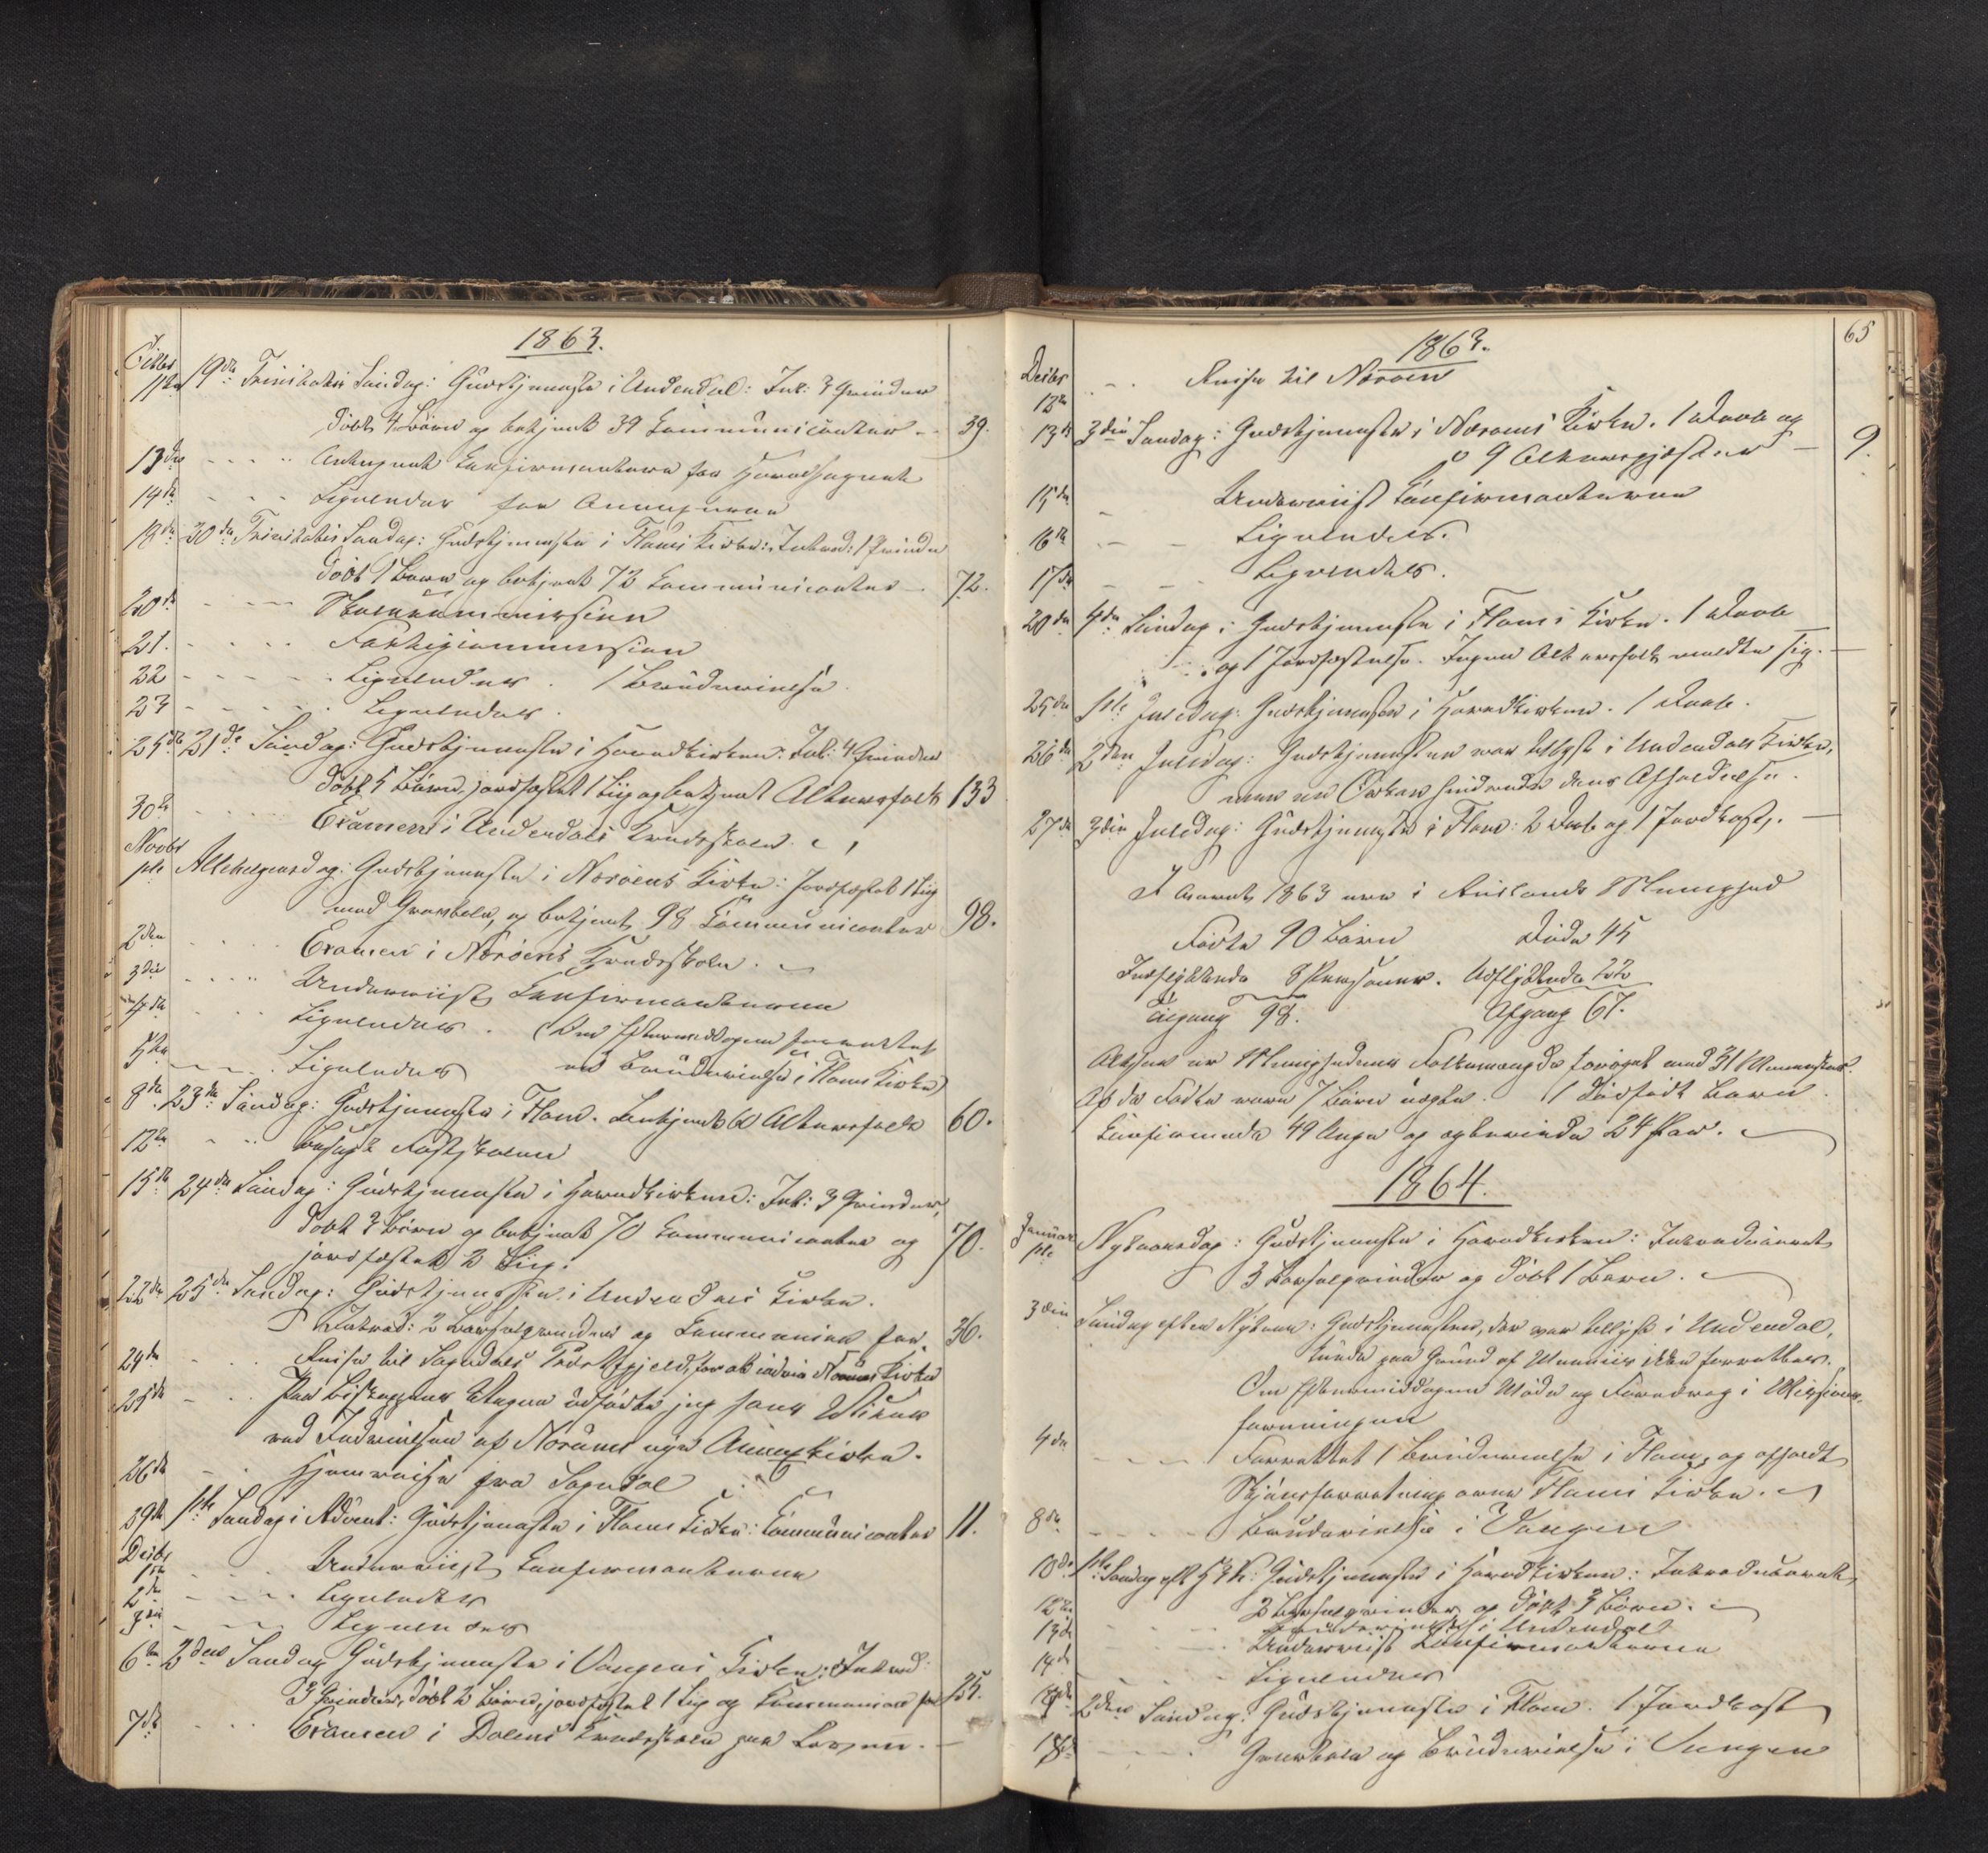 1863.
Octbr
11te 19de Trinitatis Søndag: Gudstjeneste i Undredal: Int: 3 Qvinder
døbt 4 Børn og betjent 39 Communicanter 39.
13de Antegnet Confirmanterne for Hovedsognet
14de Ligeledes for Annexerne
18de 20de Trinitatis Søndag: Gudstjeneste i Flams Kirke: Introd: 1 Qvinde
døbt 1 Barn og betjent 72 Communicanter 72.
20de Skolecommission
21. Fattigcommission
22 Ligeledes. 1 Brudevielse.
23 Ligeledes.
25de 21de Søndag: Gudstjeneste i Hovedkirken: Int: 4 Qvinder
døbt 5 Børn, jordfæstet 1 Liig og betjent Altersfolk 133
30te Examen i Undredals Kredsskole.
Novbr
1ste Allehelgensdag: Gudstjeneste i Nærøens Kirke: Jordfæstet 1 Liig
med Gravtale, og betjent 98 Communicanter 98.
2den Examen i Nærøens Kredsskole.
3die Underviist Confirmanterne
4de Ligeledes. (Om Eftermiddagen forrettet
5te Ligeledes en Brudevielse i Flams Kirke)
8de 23de Søndag: Gudstjeneste i Flam. Betjent 60 Altersfolk 60.
12te Besøgt Fastskolen
15de 24de Søndag: Gudstjeneste i Hovedkirken: Int: 3 Qvinder,
døbt 3 Børn og betjent 70 Communicanter og 70.
jordfæstet 2 Liig.
22de 25de Søndag: Gudstjeneste i Undredals Kirke.
Introd: 2 Barselqvinder og Communion for 36.
24de Reise til Sogndals Præstegjeld, for at indvie Norums Kirke
25de Paa Biskoppens Vegne udførte jeg hans
ved Indvielsen af Norums nye Annexkirke.
26de Hjemreise fra Sogndal
29de 1ste Søndag i Advent: Gudstjeneste i Flams Kirke: Communicanter 11.
Decbr
1ste Underviist Confirmanterne
2den Ligeledes
3die Ligeledes
6te 2den Søndag Gudstjeneste i Vangens Kirke: Introd:
3 Qvinder, døbt 2 Børn, jordfæstet 1 Liig og Communion for 25.
7de Examen i Dalens Kredsskole paa
65
1863.
Decbr
12te Reise til Nærøen
13de 3die Søndag: Gudstjeneste i Nærøens Kirke. 1 Daab og
9 Altersgjæster 9.
15de Underviist Confirmanterne
16de Ligeledes.
17de Ligeledes.
20de 4de Søndag: Gudstjeneste i Flams Kirke. 1 Daab
og 1 Jordfæstelse. Ingen Altersfolk meldte sig.
25de 1ste Juledag: Gudstjeneste i Hovedkirken. 1 Daab.
26de 2den Juledag: Gudstjenesten var tillyst i Undredals Kirke,
men en Orkan hindrede dens Afholdelse.
27de 3die Juledag: Gudstjeneste i Flam: 2 Daab og 1 Jordkast.
I Aaret 1863 ere i Aurlands Menighed
Fødte 90 Børn Døde 45
Indflyttende 8 Personer. Udflyttende 22
Tilgang 98. Afgang 67.
Altsaa er Menighedens Folkemængde forøget med 31 Mennesker.
Af de Fødte vare 7 Børn uægte. 1 dødfødt Barn.
Confirmerede 49 Unge og egteviede 24 Par.
1864.
Januar
1ste Nytaarsdag: Gudstjeneste i Hovedkirken: Introduceret
3 Barselqvinder og døbt 1 Barn.
3die Søndag efter Nytaar: Gudstjenesten, der var tillyst i Undredal,
kunde paa Grund af Uveir ikke forrettes.
Om Eftermiddagen Møde og Foredrag i Missions-
foreningen
4de Forrettet 1 Brudevielse i Flam, og afholdt
Skjønsforretning over Flams Kirke.
8de Brudevielse i Vangen
10de 1ste Søndag eft H3K: Gudstjeneste i Hovedkirken: Introduceret
2 Barselqvinder og døbt 3 Børn.
12te Brudevielse i Undredal
13de Underviist Confirmanterne
14de Ligeledes
17de 2den Søndag: Gudstjeneste i Flam. 1 Jordkast
18de Gravtale og Brudevielse i Vangen